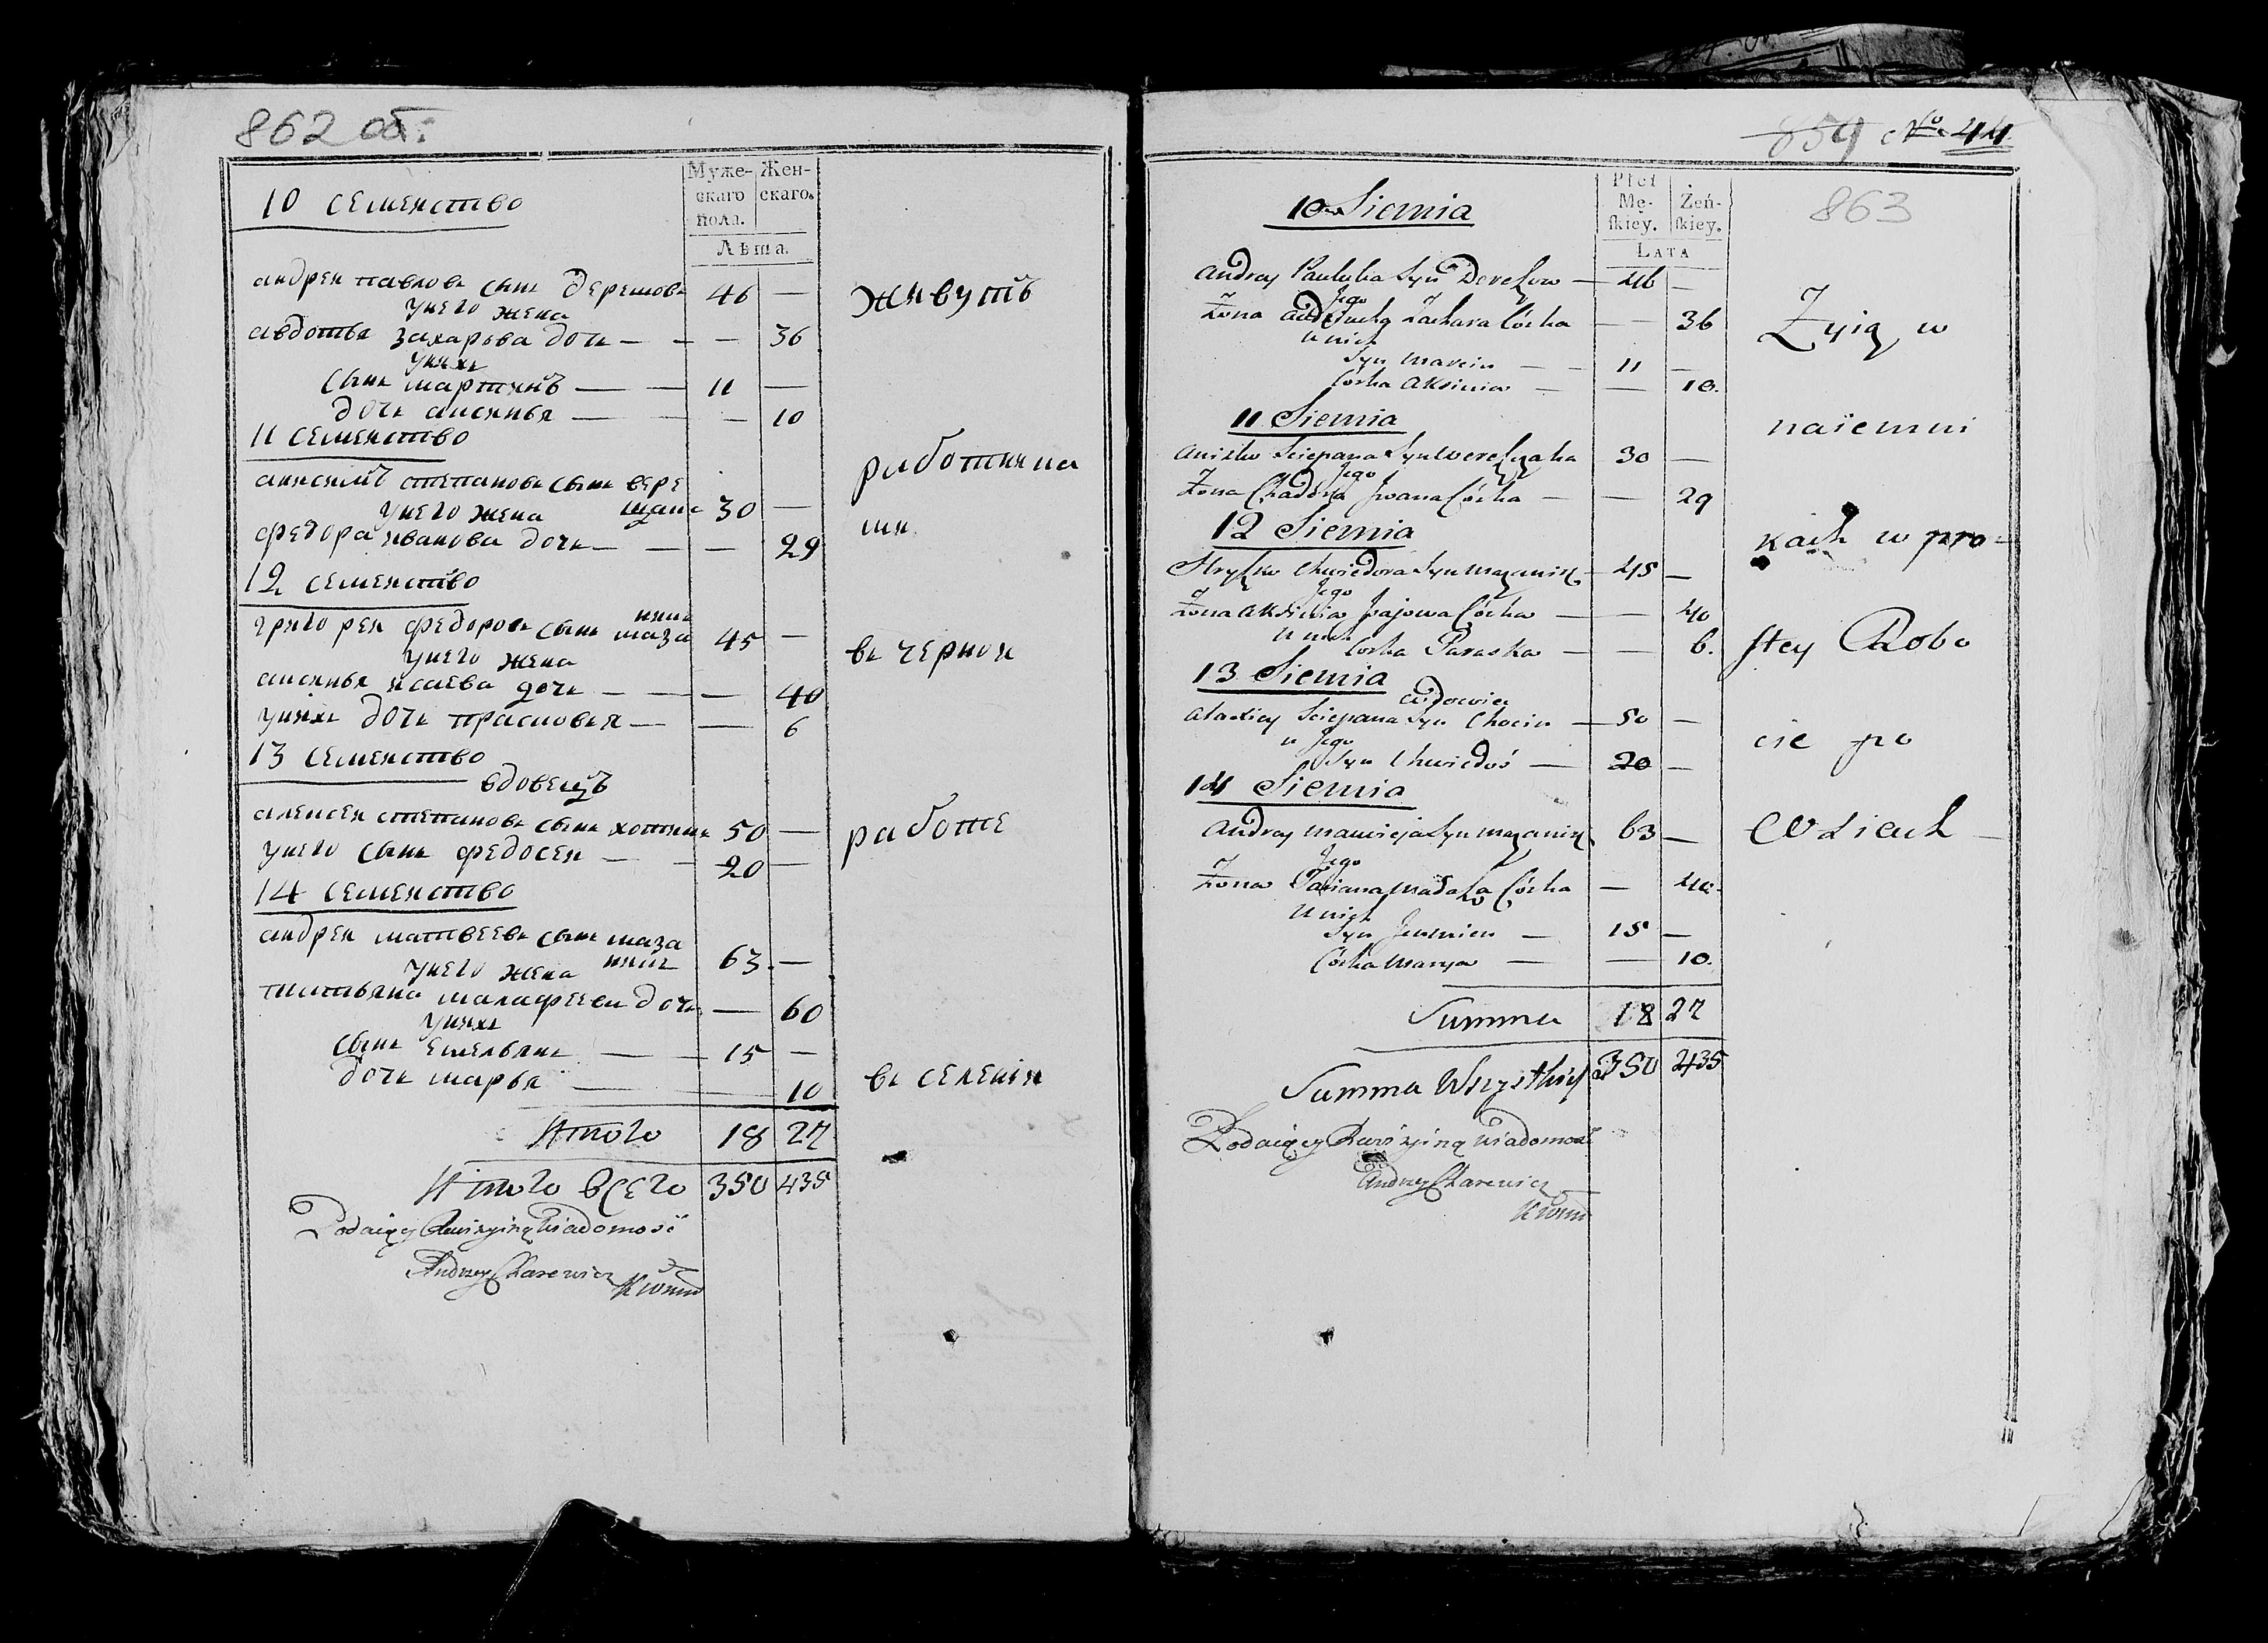 862 об.
Муже-
скаго
пола.
Жен-
скаго.
Лѣта.
10 семейство
андрей павловъ сынъ дерешовъ 46 —
унего жена
авдотья захарова дочь — — — 36
унихъ
сынъ мартинъ — — 11 —
дочь аксинья — — 10
11 семейство
анисимъ степановъ сынъ вере
щака 30 —
унего жена
федора иванова дочь — — — 29
12 семейство
григорей федоровъ сынъ маза
никъ 45 —
унего жена
аксинья исаева дочь — — — 40
унихъ дочь прасковья — — 6
13 семейство
вдовецъ
алексей степановъ сынъ хотинъ 50 —
унего сынъ федосей — — 20 —
14 семейство
андрей матвеевъ сынъ маза
никъ 63 —
унего жена
татьяна малафеева дочь — 60
унихъ
сынъ емельянъ — — 15 —
дочь марья — — 10
Итого 18 27
Итого всего 350 435
Podaiący Rewizyiną Wiadomość
Andrzey
живутъ
работника
ми
въ черной
работе
въ селении
859 No 44
863
Płci
Mę-
skiey.
Żeń-
skiey.
Lata
10 Siemia
Andrey Pauluka Syn Dereszow — 46 —
Jego
Żona Audziucha Zachara Córka — 36
U nich
Syn Marcin — — 11 —
Corka Aksinia — — 10.
11 Siemia
Anisko Sciepana Syn Wereszczaka 30 —
Jego
Żona Chadora Iwana Córka — — 29
12 Siemia
Hryszko Chwiedora Syn Mazanik — 45 —
Jego
Żona Aksinia Córka — — 40
U nich
Corka Paraska — — 6.
13 Siemia
Wdowiec
Alaxiey Sciepana Syn Chocin — 50 —
u Jego
Syn Chwiedoś — 20 —
14 Siemia
Andrey Mawieja Syn Mazanik 63 —
Jego
Żona Taciana Córka —
U nich
Syn — 15 —
Córka Marya — — 10.
Summa 18 27
Summa Wszystkich 350 435
Podaiący Rewizyiną Wiadomość
Andrzey
Żyią w
naiemni
kach w pro
stey Robo
cie po
Wsiach